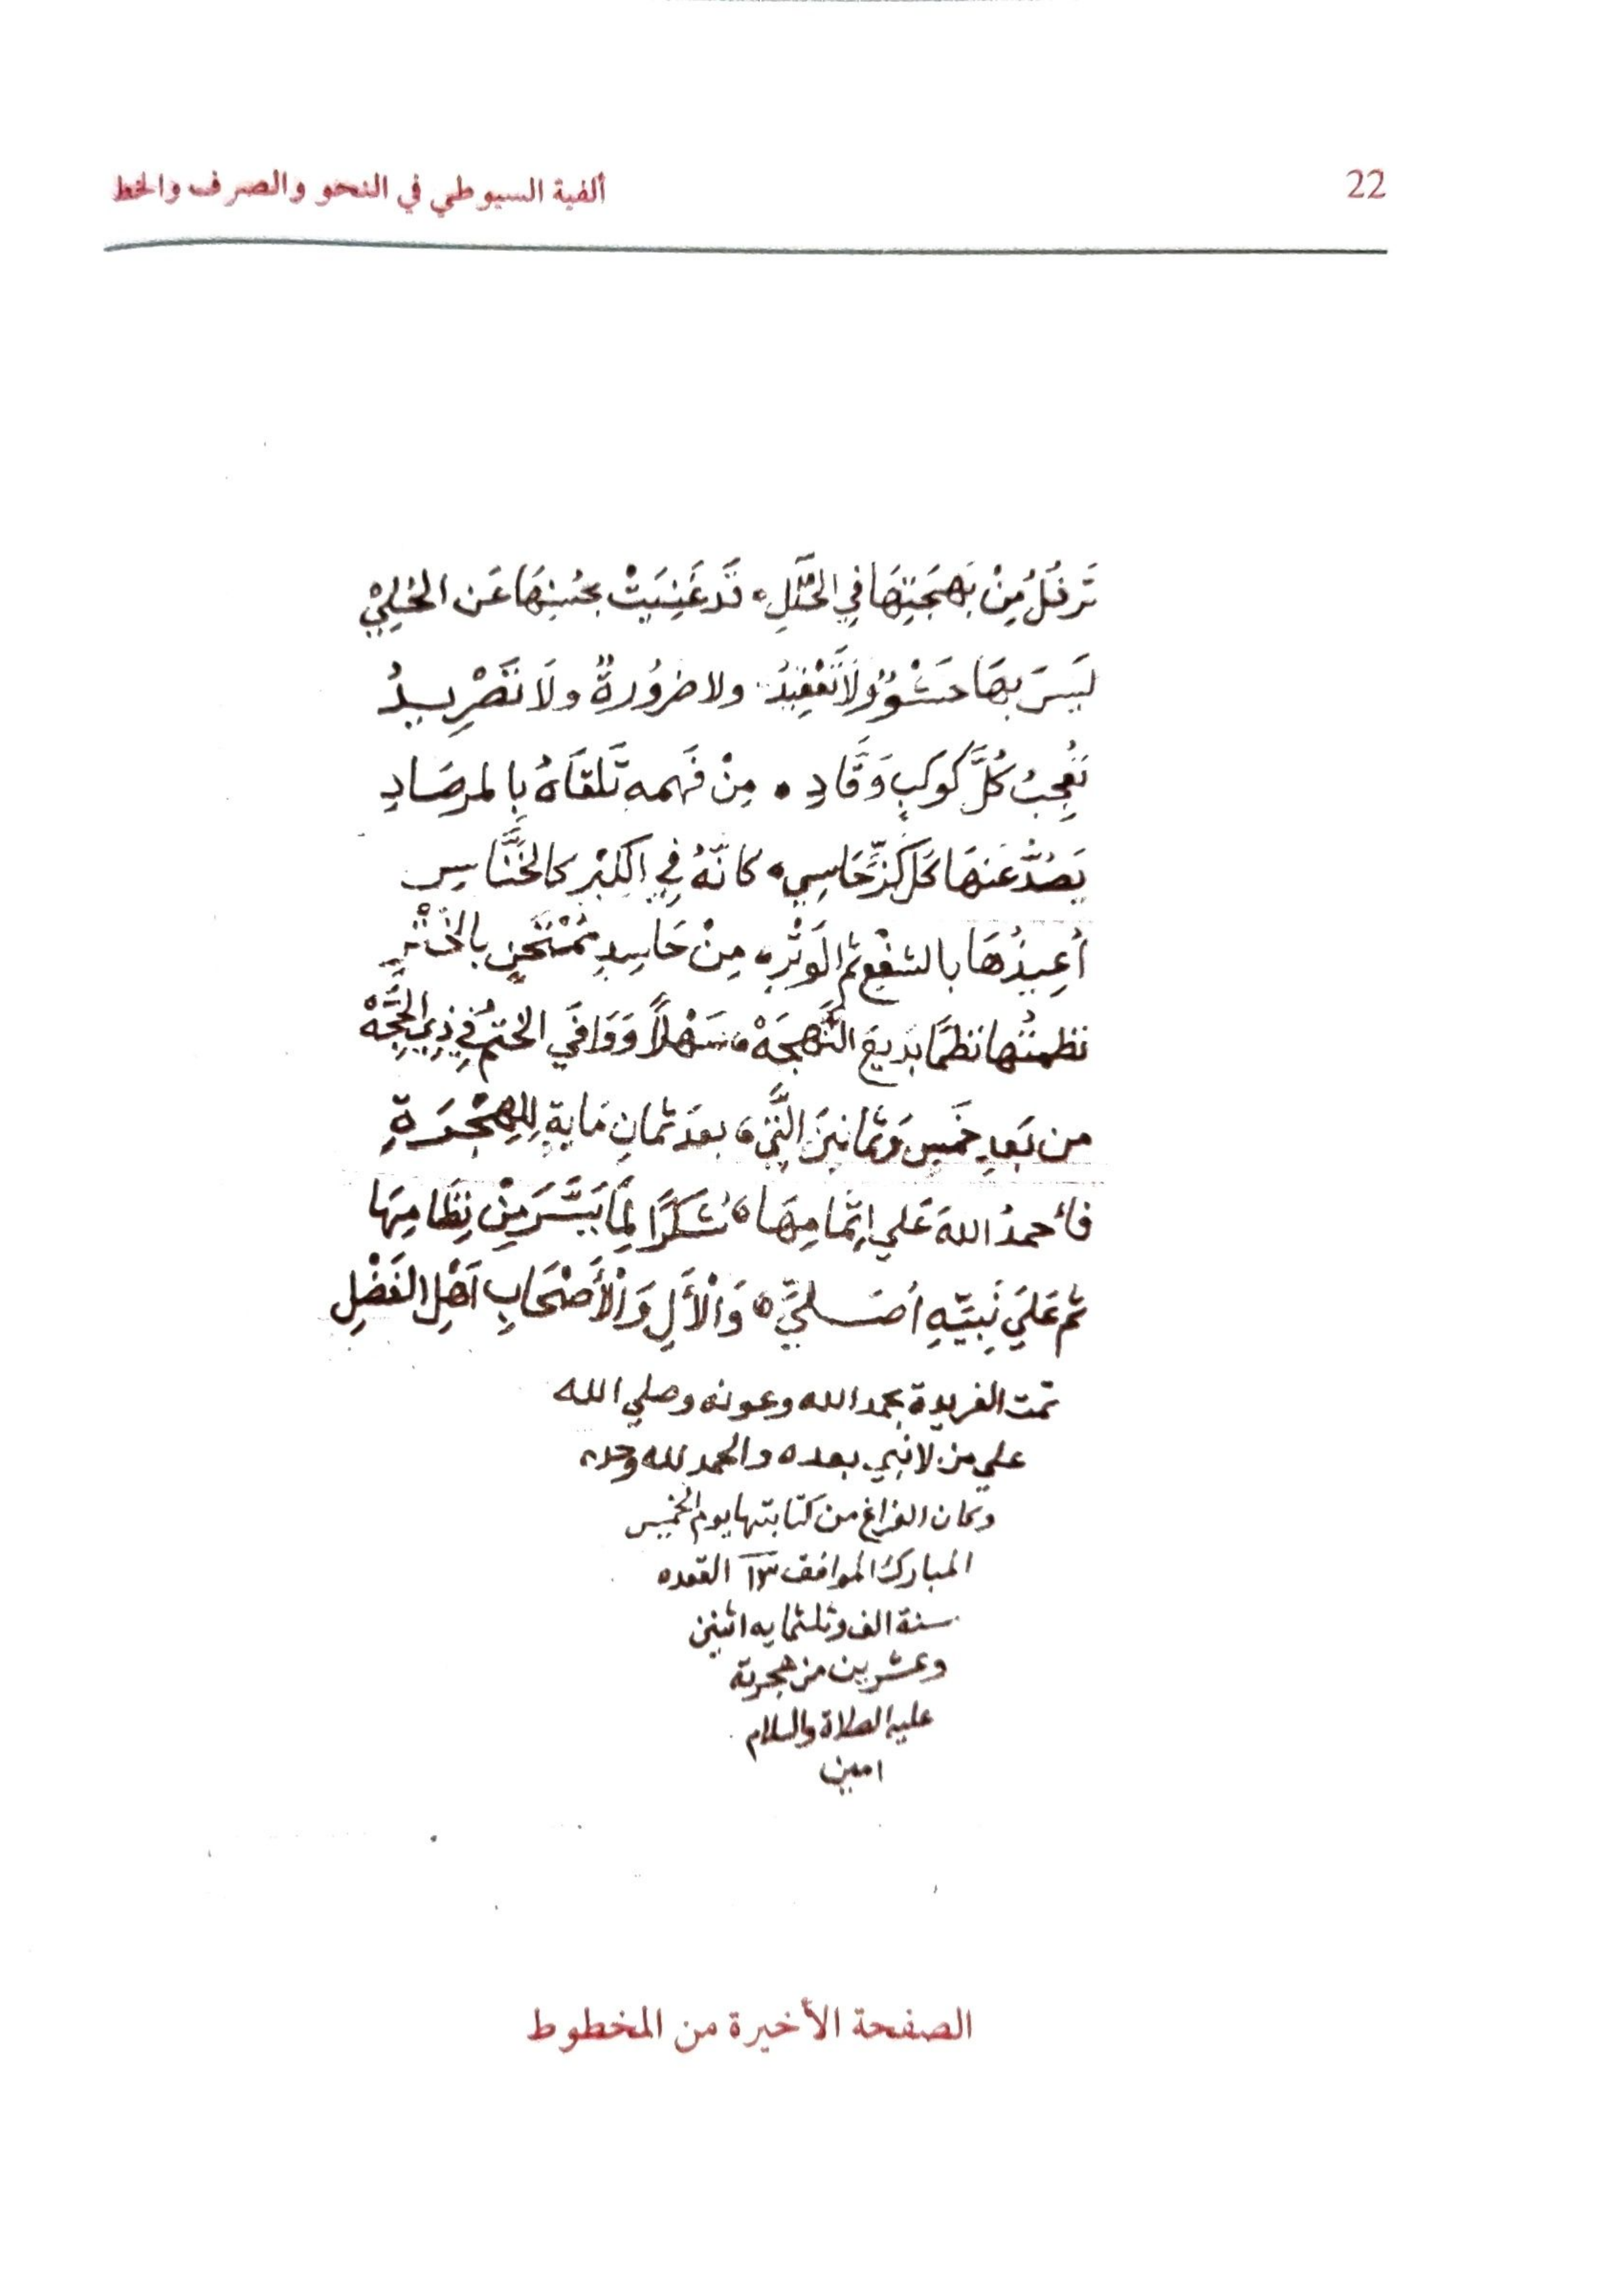 22
ألفية السيوطي في النحو والصرف والخط
تَرفُلُ مِنْ بَهجَتِهَا فِي الحُلَلِ ۰ قَد غَنِيَتْ بحُسنِهَا عَن الحُلِيْ
لَيسَ بِهَا حَشْوٌ وَلَا تَعْقِيدُ ۰ ولا ضرُورةٌ ولَا تَصْرِيدُ
تُعجِبُ كُلَّ كَوكَبٍ وَقَّادِ ۰ مِنْ فَهمه تَلقَاهُ بِالمرصَادِ
يَصُدُّ عَنهَا كل كَزٍّ جَاسِي ۰ كانَّهُ فِي الكِبْرِ كالخَنَّاسِ
أُعِيذُهَا بالشفعِ ثم الوَتْرِ ۰ مِنْ حَاسِدٍ مُمْتَحَنٍ بالخَتْرِ
نظمتُها نظمًا بَدِيعَ النَّهجَهْ ۰ سَهْلًا وَوَافَي الختمُ فِي ذِي الحِجَّهْ
من بَعدِ خَمسٍ وَثمانينَ الَّتِي ۰ بعدَ ثمانِ مَايةٍ لِلهِجْرَةِ
فأحمدُ اللهَ عَلي اِتمامِهَا ۰ شُكرًا لِمَا يَسَّرَ مِنْ نِظَامِهَا
ثم عَلَي نَبِيّهِ أُصَلِيّ ۰ وَالْأَلِ وَالْأَصْحَابِ اَهْلِ الفَضْلِ
تمت الفريدة بحمد الله وعونه وصلي الله
علي من لا نبي بعده والحمد لله وحده
وكان الفراغ من كتابتها يوم الخميس
المبارك الموافق ١٣ القعده
سنة الف وثلثمايه اثنين
وعشرين من هجرته
عليه الصلاة والسلام
امين
الصفحة الأخيرة من المخطوط